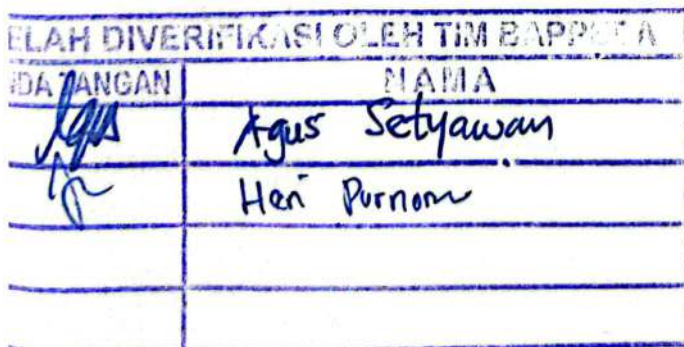 ELAH DIVERIFIKASI OLEH TIM BAPPEDA
NDA TANGAN NAMA
Agus Agus Setyawan
Heri Purnomo